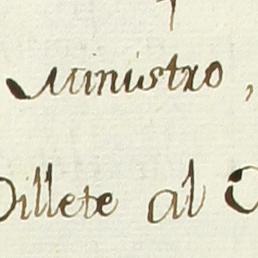 Ministro,
Billete al